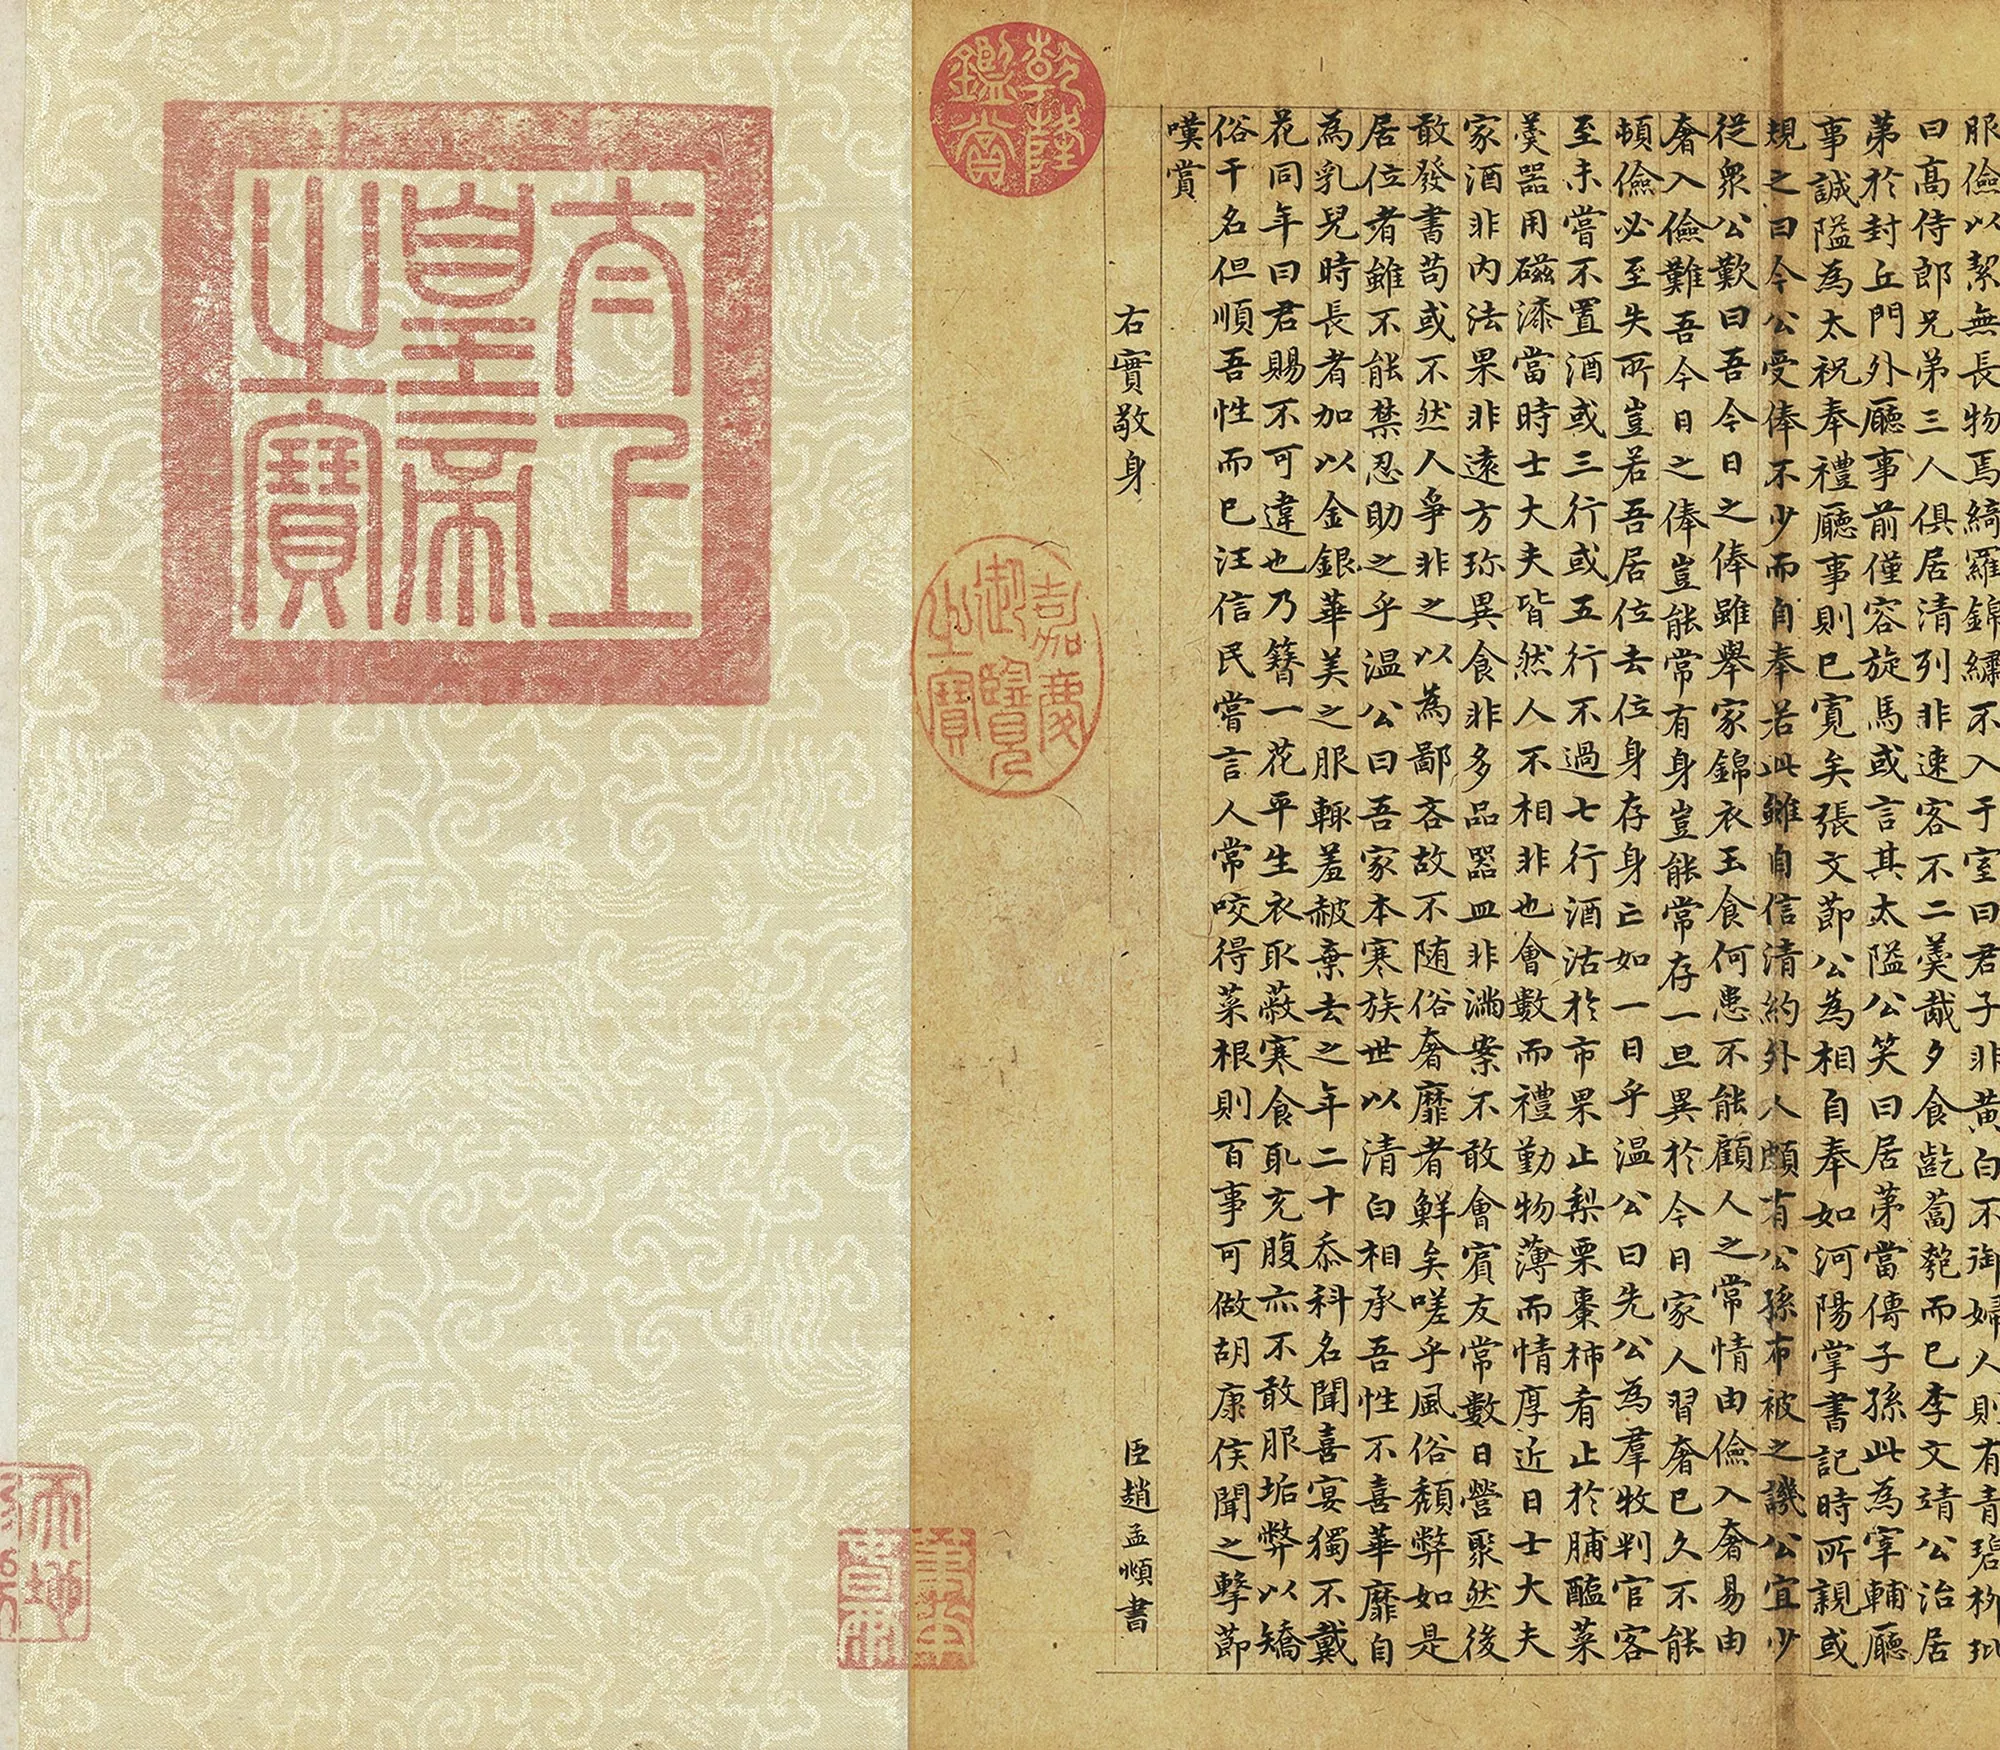 服儉以絜無長物焉綺羅錦繡不入于室曰君子非黃白不御婦人則有青碧柳玭
曰高侍郎兄弟三人俱居清列非速客不二羹胾夕食齕蔔匏而已李文靖公治居
第於封丘門外廳事前僅容旋馬或言其太隘公笑曰居第當傳子孫此為宰輔廳
事誠隘為太祝奉禮廳事則已寬矣張文節公為相自奉如河陽掌書記時所親或
規之曰今公受俸不少而自奉若此雖自信清約外人頗有公孫布被之譏公宜少
從眾公歎曰吾今日之俸雖舉家錦衣玉食何患不能顧人之常情由儉入奢易由
奢入儉難吾今日之俸豈能常有身豈能常存一旦異於今日家人習奢已久不能
頓儉必至失所豈若吾居位去位身存身亡如一日乎溫公曰先公為羣牧判官客
至未嘗不置酒或三行或五行不過七行酒沽於市果止梨栗棗柿肴止於脯醢菜
羹器用磁漆當時士大夫皆然人不相非也會數而禮勤物薄而情厚近日士大夫
家酒非內法果非遠方珍異食非多品器皿非滿案不敢會賓友常數日營聚然後
敢發書苟或不然人爭非之以為鄙吝故不随俗奢靡者鮮矣嗟乎風俗頹弊如是
居位者雖不能禁忍助之乎溫公曰吾家本寒族世以清白相承吾性不喜華靡自
為乳兒時長者加以金銀華美之服輙羞赧棄去之年二十忝科名聞喜宴獨不戴
花同年曰君賜不可違也乃簪一花平生衣取蔽寒食取充腹亦不敢服垢弊以矯
俗干名但順吾性而已汪信民嘗言人常咬得菜根則百事可做胡康侯聞之擊節
嘆賞
右實敬身
臣趙孟頫書
乾隆鑑賞
嘉慶御覽之寶
太上皇帝之寶